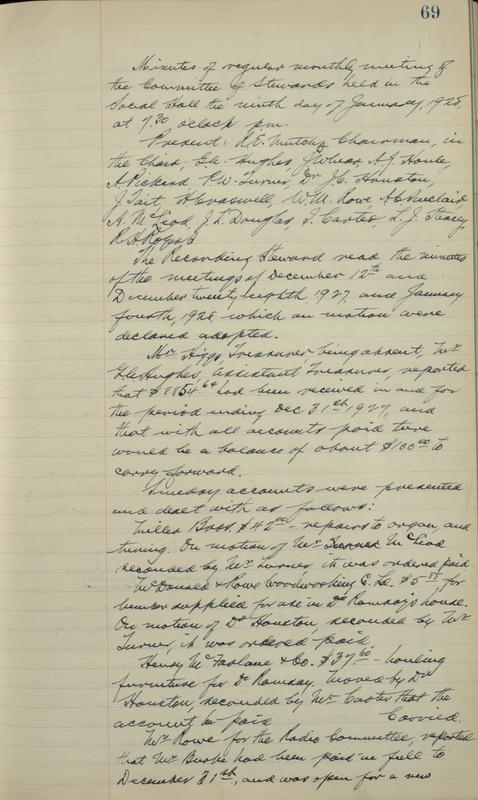 69
Minutes of regular monthly meeting of
the Committee of Stewards held in the
Social Hall the ninth day of January, 1928,
at 7.30 oclock p.m.
Present: R.E. Mutch, Chairman, in
the Chair; Hughes, A.J. Houle,
A Pickard, P.W. Turner, Dr. J.C. Houston,
J. Tait, H Creswell, W.M. Rowe,
A. McLeod, J.L. Douglas, J. Carter, L.J.
R.H. Rogers.
The Recording Steward read the minutes
of the meetings of December 12th and
December twenty eighth, 1927, and January
fourth, 1928, which on motion were
declared adopted.
Mr Higgs, Treasurer being absent, Mr
Hughes, assistant Treasurer, reported
that $8854.64 had been received in and for
the period ending Dec 31st 1927, and
that with all accounts paid there
would be a balance of about $100.00 to
carry forward.
Sunday accounts were presented
and dealt with as follows:
Miller Bros. $42.00 - repairs to organ and
tuning. On motion of Mr McLeod
seconded by Mr Turner it was ordered paid
McDonald & Rowe Woodworking C. Ld. $5 for
lumber supplied for use in Dr Ramsay's house.
On motion of Dr Houston, seconded by Mr
Turner, it was ordered paid.
Henry McFarlane & Co. $37.60 - hauling
furniture for Dr Ramsay. Moved by Dr
Houston, seconded by Mr Carter that the
account be paid Carried.
Mr Rowe for the Radio Committee, reported
that Mr Burke had been paid in full to
December 31st, and was open for a new